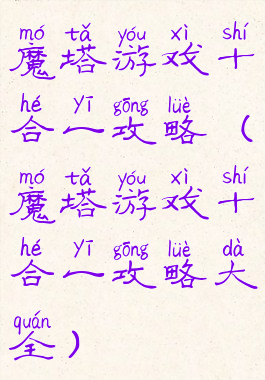 mó tǎ yóu xì shí
魔塔游戏十
hé yī gōng lüè
合一攻略（
mó tǎ yóu xì shí
魔塔游戏十
hé yī gōng lüè dà
合一攻略大
quán
全）